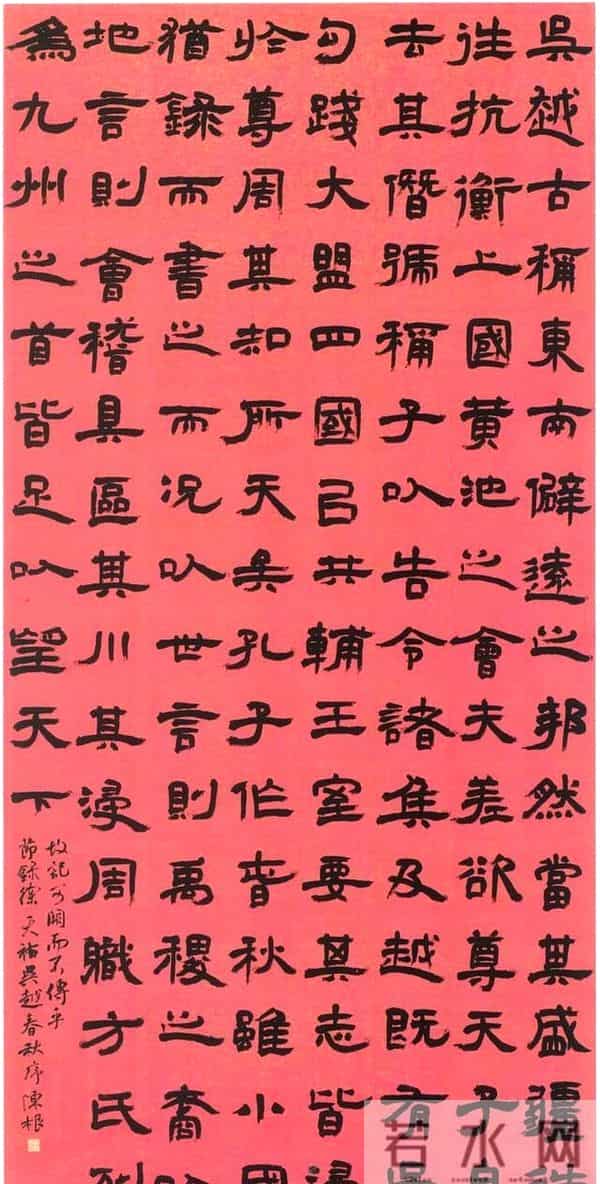 吳越古稱東南僻遠之邦然當其盛彊往
往抗衡上國黃池之會夫差欲尊天子自
去其僭號稱子以告令諸侯及越既有吳
句踐大盟四國以共輔王室要其志皆浸
於尊周其知所天矣孔子作春秋雖小國
猶錄而書之而況以世言則禹稷之裔以
地言則會稽具區其川其浸周職方氏列
為九州之首皆足以望天下
故記可闕而不傳乎
節錄徐天祜吳越春秋序陳根
若水网